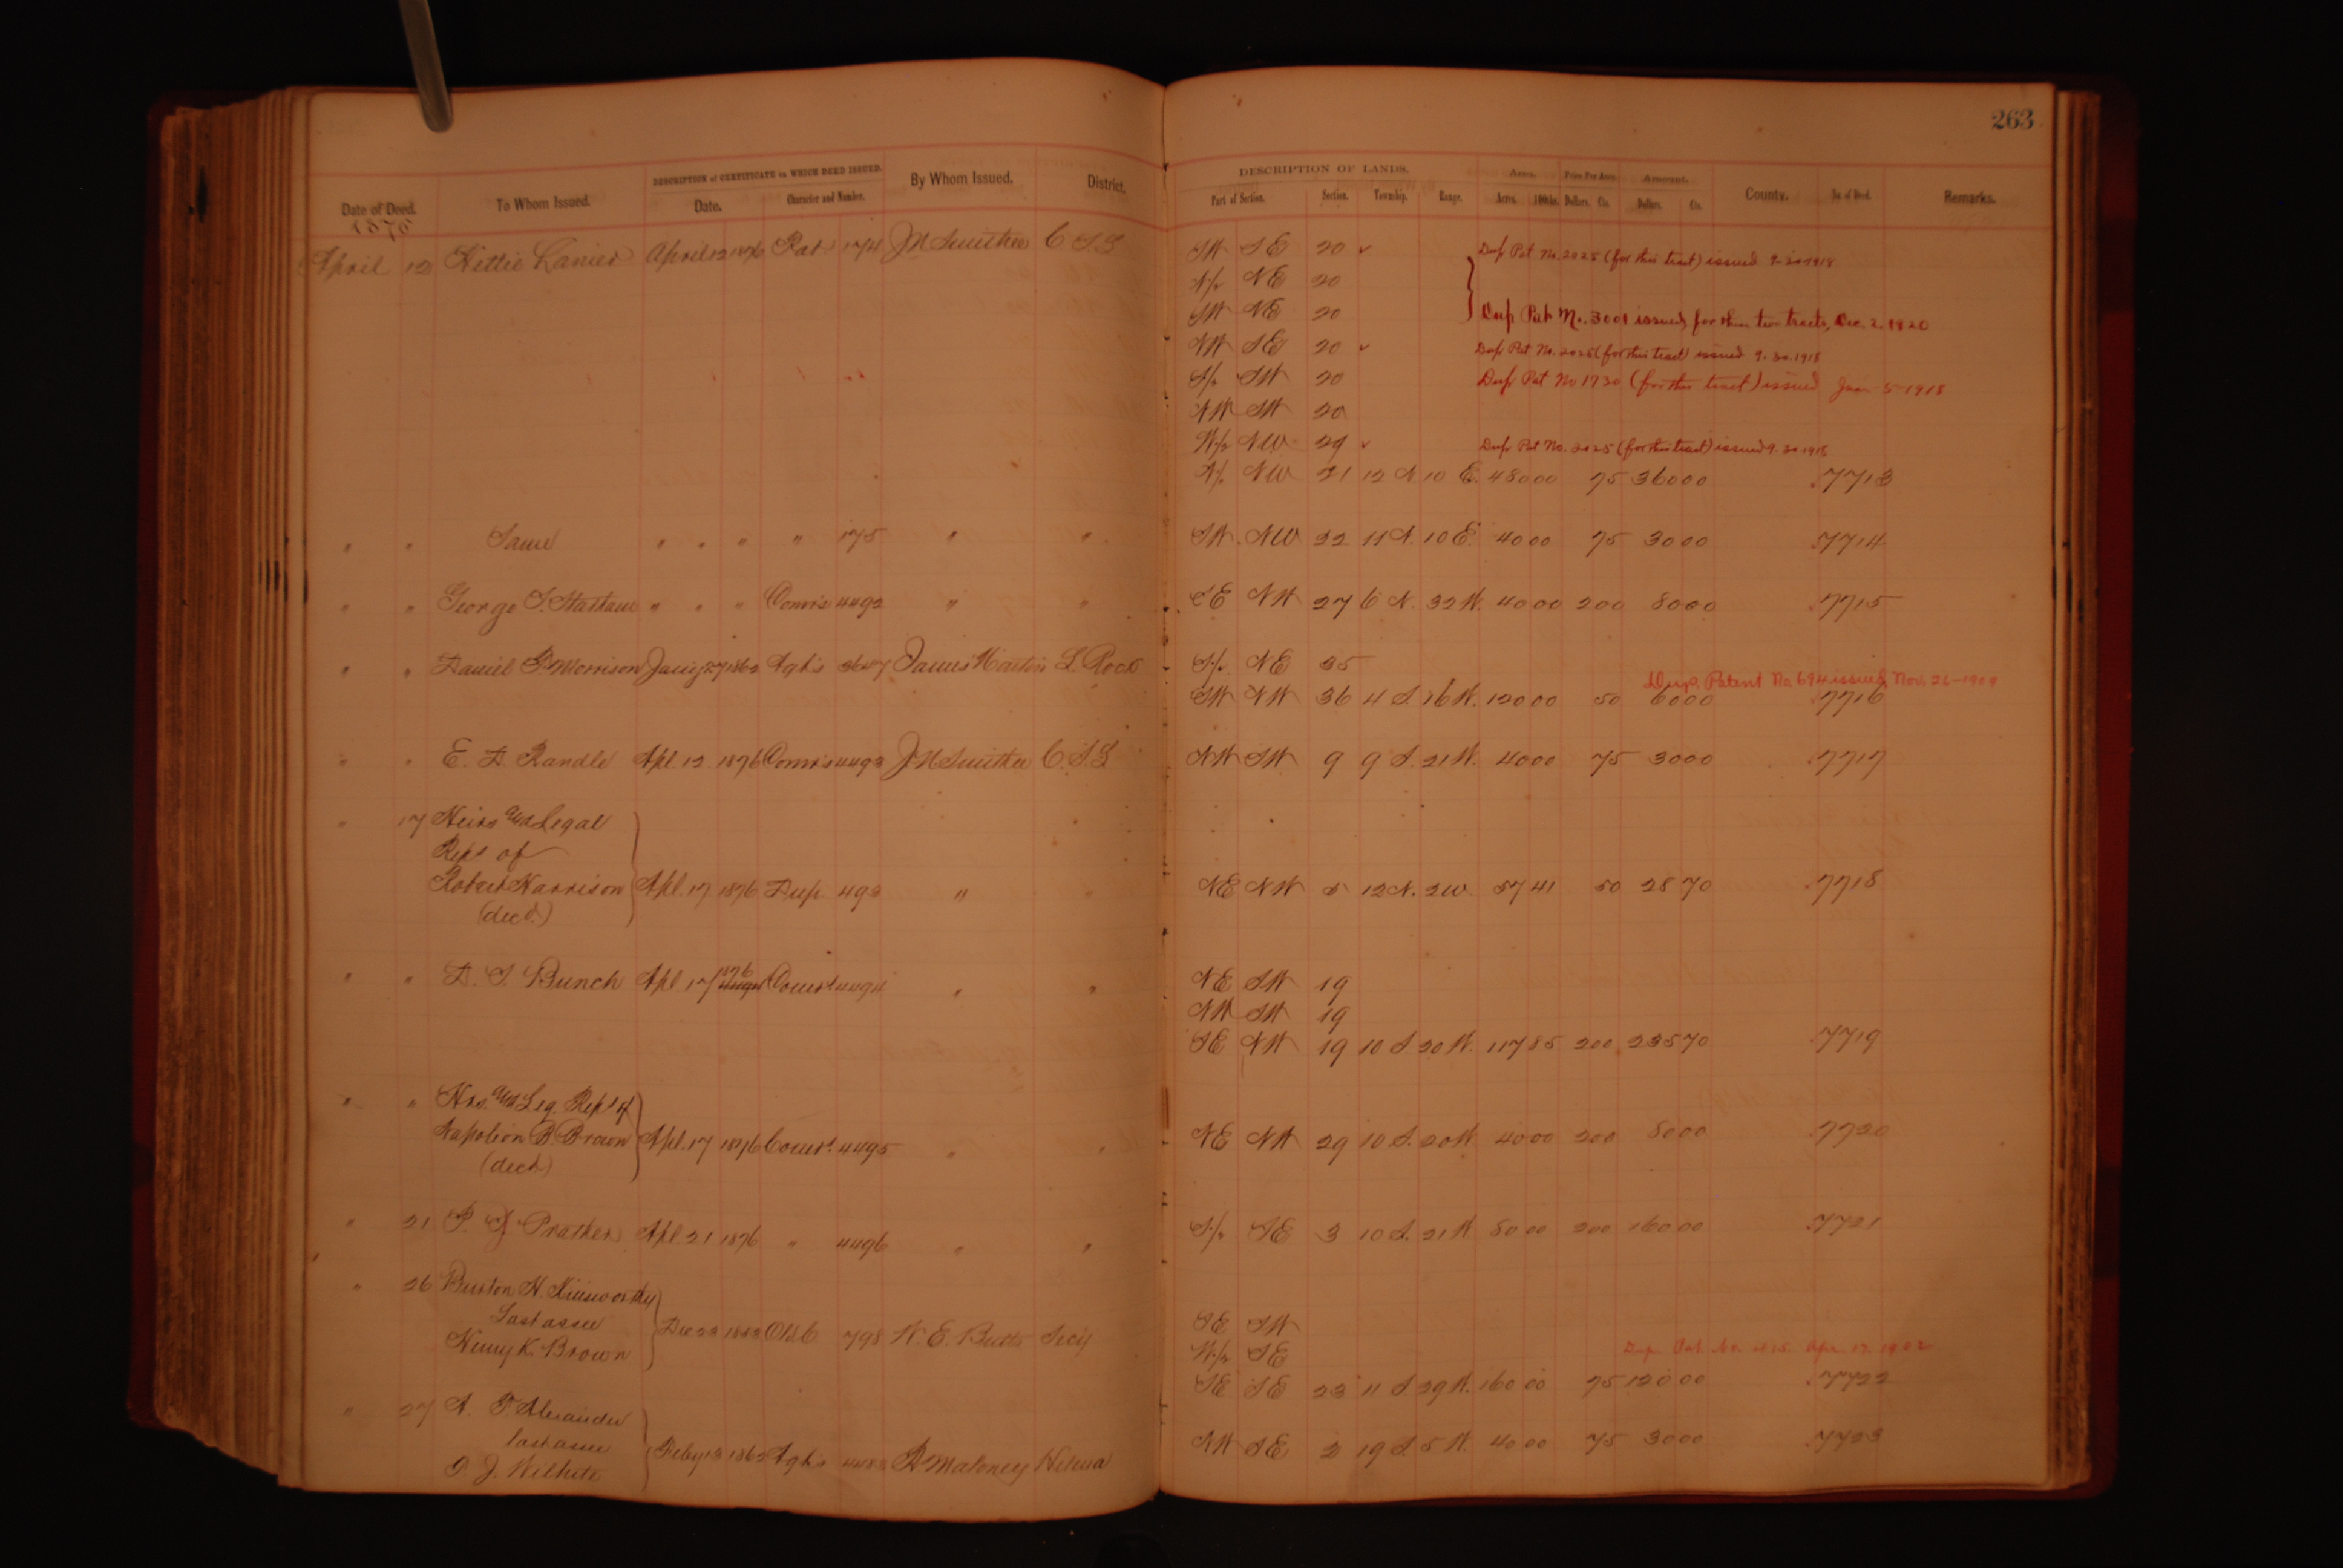 263
DESCRIPTION of CERTIFICATE on WHICH DEED ISSUED. DESCRIPTION OF LANDS. Area. Price Per Acre. Amount.
Date of Deed. To Whom Issued. Date. Character and Number. By Whom Issued. District. Part of Section. Section. Township. Range. Acres. 100ths. Dollars. Cts. Dollars. Cts. County. No. of Deed. Remarks.
April 12 Lanier April 12 1876 174 J N Smithee C S L SW SE 20 ✓ Dup Pat No. 2025 (for this tract) issued 9-30-1918
N/2 NE 20
SW NE 20 Dup Pat No. 3001 issued for these two tracts, Dec. 2. 1920
NW SE 20 ✓ Dup Pat No. 2025 (for this tract) issued 9.30.1918
S/2 SW 20 Dup Pat No 1730 (for this tract) issued Jan - 5 - 1918
NW SW 20
W/2 NW 29 ✓ Dup Pat No. 2025 (for this tract) issued 9.30 1918
N/2 NW 21 12 N. 10 E. 480 00 75 360 00 7713
" " Same " " " " 175 " " SW NW 22 11 N. 10 E. 40 00 75 30 00 7714
" " George S. " " " 4492 " " SE NW 27 6 N. 32 W. 40 00 2 00 80 00 7715
" " Daniel Morrison Jany 27 1862 James Martin L. Rock S/2 NE 35
Dup. Patent No. 694 issued Nov. 26-1909
SW NW 36 4 S. 16 W. 120 00 50 60 00 7716
" " E. D. Randle Apl. 12 1876 4493 J N Smithee C. S. L NW SW 9 9 S. 21 W. 40 00 75 30 00 7717
" 17 Heirs and Legal
Reps of
Robert Harrison Apl. 17 1876 Dup. 493 " " NE NW 5 12 N. 2 W 57 41 50 28 70 7718
(decd.)
" " D. S. Bunch Apl. 17 1876 4494 " " NE SW 19
NW SW 19
SE NW 19 10 S 20 W. 117 85 2 00 235 70 7719
" " Hrs. and Leg. Reps of
Napoleon B. Brown Apl. 17 1876 4495 " " NE NW 29 10 S. 20 W 40 00 2 00 80 00 7720
(decd)
" 21 P. Prather Apl. 21 1876 " 4496 " " S/2 SE 3 10 S. 21 W 80 00 2 00 160 00 7721
" 26 Burton H. Kinsworthy
Last assee SE SW
Henry K. Brown Dec 798 W. E. Butts Secy W/2 SE Dup. Pat. No. Apr. 17. 1902
SE SE 23 11 S 29 W. 160 00 75 120 00 7722
" 27 A. Alexander
last assee
J. Wilhite Feby 1862 Maloney Helena NW SE 2 19 S. 5 W. 40 00 75 30 00 7723